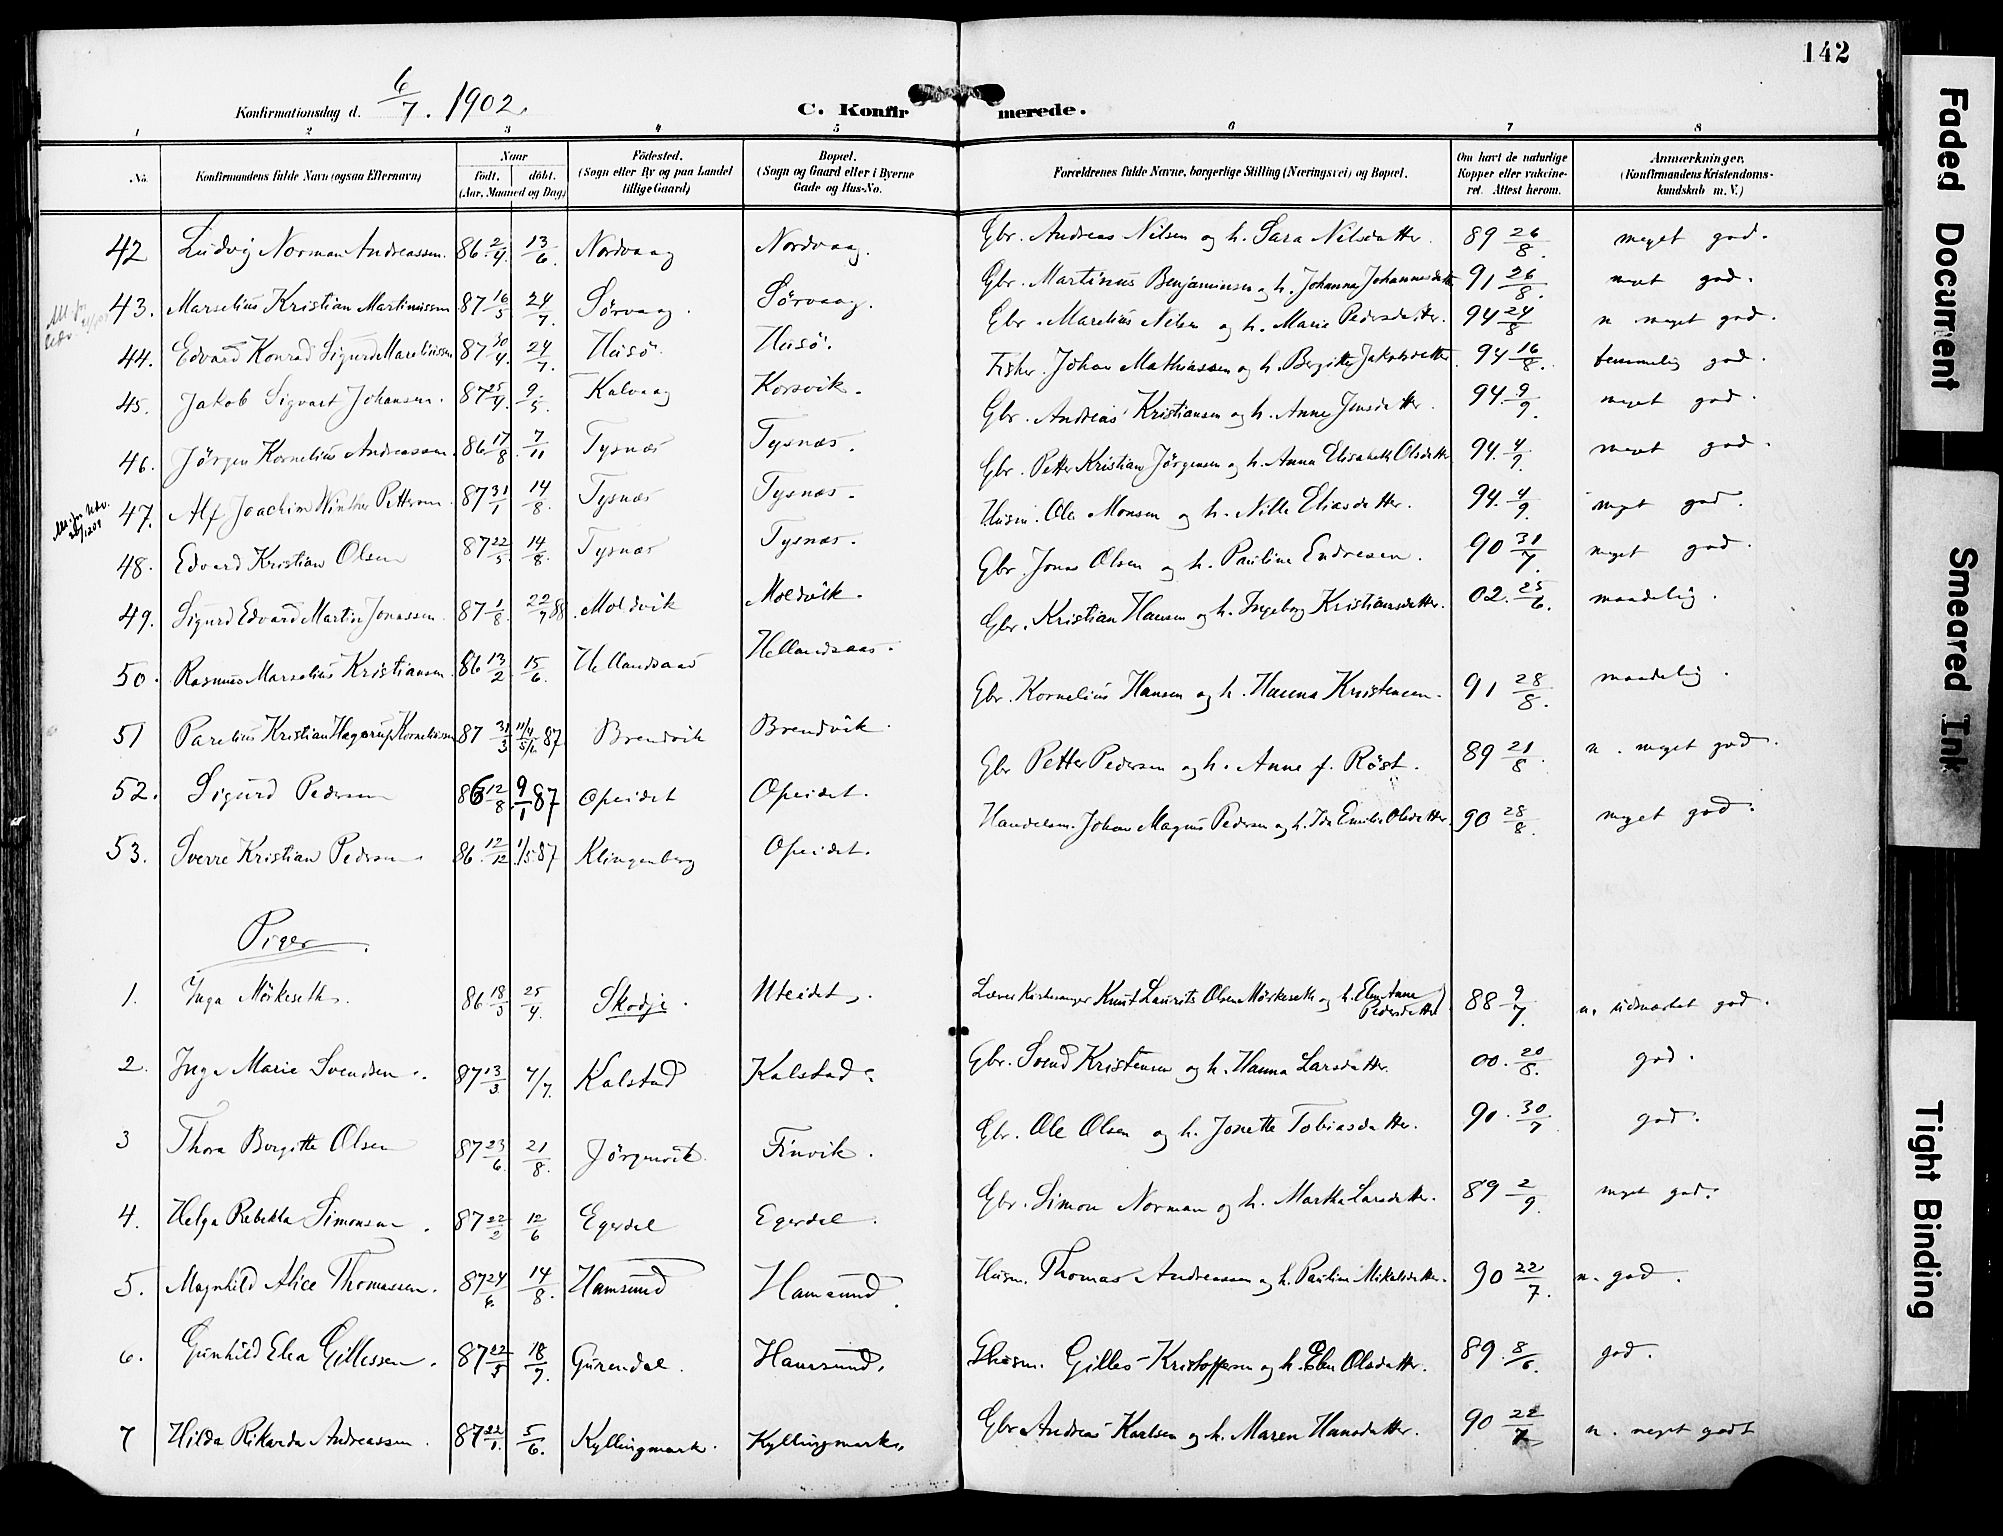 142
Konfirmationsdag d. 6/7. 1902.
C. Konfirmerede.
1 2 3 4 5 6 7 8
No. Konfirmandens fulde Navn (ogsaa Efternavn) Naar födt. döbt. (Aar, Maaned og Dag) Födested. (Sogn eller By og paa Landet tillige Gaard) Bopæl. (Sogn og Gaard eller i Byerne Gade og Hus-No. Forældrenes fulde Navne, borgerlige Stilling (Næringsvei) og Bopæl. Om havt de naturlige Kopper eller vaccineret. Attest herom. Anmærkninger. (Konfirmandens Kristendomskundskab m. V.)
42 Ludvig Norman Andreassen. 86 2/4. 13/6. Nordvaag Nordvaag. Gbr. Andreas Nilsen og h. Sara Nilsdatter. 89 26/8. meget god.
43. Marselius Kristian Martinussen 87 16/5 24/7. Sørvaag. Sørvaag. Gbr. Martinus Benjaminsen og h. Johanna Johannesdatter 91 26/8. meget god.
44. Edvard Konrad Sigurd Mareliussen 87 30/4. 24/7. Husö. Husö. Gbr. Marelius Nilsen og h. Marie Pedersdatter. 94 24/8 n meget god.
45. Jakob Sigvart Johansen. 87 25/4. 9/5. Kalvaag Korsvik. Fisker. Johan Mathiassen og h. Bergitte Jakobsdatter 94 16/8. temmelig god.
46. Jörgen Kornelius Andreassen. 86 17/8. 7/11 Tysnæs Tysnæs. Gbr. Andreas Kristiansen og h. Anne Jensdatter. 94. 9/9. meget god.
47. Alf Joachim Winther Pettersen. 87 31/1 14/8. Tysnæs Tysnæs. Gbr. Petter Kristian Jörgensen og h. Anna Elisabeth Olsdatter 94. 4/9. meget god.
48. Edvard Kristian Olsen 87 22/5. 14/8. Tysnæs Tysnæs. Husm. Ole Monsen og h. Nille Eliasdatter. 94. 4/9. meget god.
49. Sigurd Edvard Martin Jonassen. 87 1/8. 22/7 88. Moldvik Moldvik. Gbr. Jonas Olsen og h. Pauline Endresen. 90 31/7. meget god.
50. Rasmus Marselius Kristiansen. 86 13/2. 15/6. Hellandsaas Hellandsaas. Gbr. Kristian Hansen og h. Ingeborg Kristiansdatter. 02. 25/6. maadelig.
51 Parelius Kristian Hagerup Korneliussen 87 31/3 11/4 87 Brendvik Brendvik. Gbr. Kornelius Hansen og h. Hanna Kristensen. 91 28/8. maadelig.
52. Sigurd Pedersen 86 12/8. 9/1 87 Opeidet Opeidet. Gbr Petter Pedersen og h. Anne f. Röst. 89 21/8. n. meget god.
53. Sverre Kristian Pedersen. 86. 12/12. 1/5 87 Klingenberg Opeidet. Handelsm. Johan Magnus Pedersen og h. Ida Emilie Olsdatter. 90 28/8. meget god.
Piger.
1. Inga Mörkeseth. 86 18/3 25/4. Skodje. Uteidet. Lærer Kirkesanger Knut Laurits Olsen Mörkeseth og h. Elen Anne Pedersdatter 88 9/7. n. udmærket god.
2. Inga Marie Svendsen. 87 13/3. 4/7. Kalstad Kalstad. Gbr. Svend Kristensen og h. Hanna Larsdatter. 00. 20/8. god.
3 Thora Bergitte Olsen 87 23/6. 21/8. Jörgenvik. Finvik. Gbr. Ole Olsen og h. Jonette Tobiasdatter. 90. 30/7 god.
4. Helga Rebekka Simonsen. 87 22/2 12/6 Egerdal Egerdal. Gbr. Simon Norman og h. Martha Larsdatter. 89 2/9. meget god.
5. Magnhild Alice Thomassen. 87 24/6. 14/8. Hamsund Hamsund. Husm. Thomas Andreassen og h. Pauline Mikalsdatter. 90 22/7. n. god.
6. Gunhild Elea Gillessen. 87 22/5 18/7. Gurendal. Hamsund. Husm. Gilles Kristoffersen og h. Elen Olsdatter. 89. 8/6. god.
7 Hilda Rikarda Andreassen. 87 22/1. 5/6. Kyllingmark. Kyllingmark. Gbr Andreas Karlsen og h. Maren Hansdatter. 90 22/7 n. meget godt
Faded Document
Smeared Ink
Tight Binding